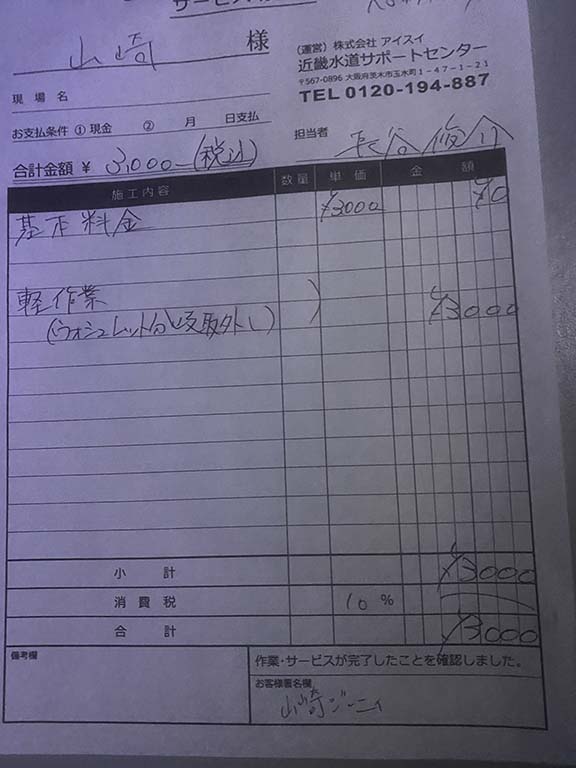 山崎 様
(運営) 株式会社 アイスイ
近畿水道サポートセンター
〒567-0896 大阪府茨木市玉水町1-47-1-21
TEL 0120-194-887
現場名
お支払条件 ① 現金 ② 月 日支払
担当者 長谷 俊介
合計金額 ¥ 3,000-(税込)
施工内容 数量 単価 金額
基本料金 ¥3000 ¥0
軽作業
(ウォシュレット分岐取外し) ¥3000
小計 ¥3000
消費税 10%
合計 ¥3000
備考欄
作業・サービスが完了したことを確認しました。
お客様署名欄
山崎